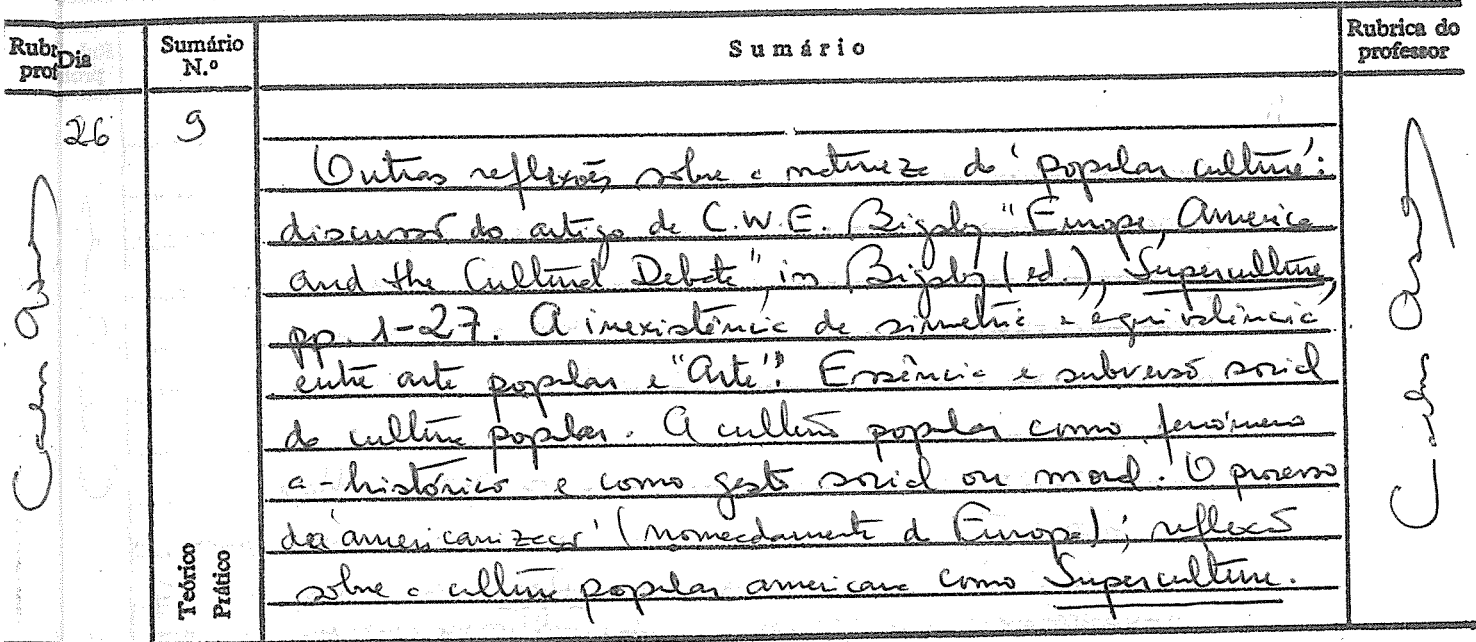 Rubr
prof
Dia
Sumário
N.º
Sumário
Rubrica do
professor
26
9
Outras reflexões sobre a natureza da 'popular culture':
discussão do artigo de C.W.E. Bigsby "Europe, America
and the Cultural Debate", in Bigsby (ed.), Superculture,
pp. 1-27. A inexistência de simetria e equivalência
entre arte popular e "Arte". Essência e subversão social
da cultura popular. A cultura popular como fenómeno
a-histórico e como gesto social ou moral. O processo
da 'americanização' (nomeadamente da Europa); reflexão
sobre a cultura popular americana como Superculture.
Teórico
Prático